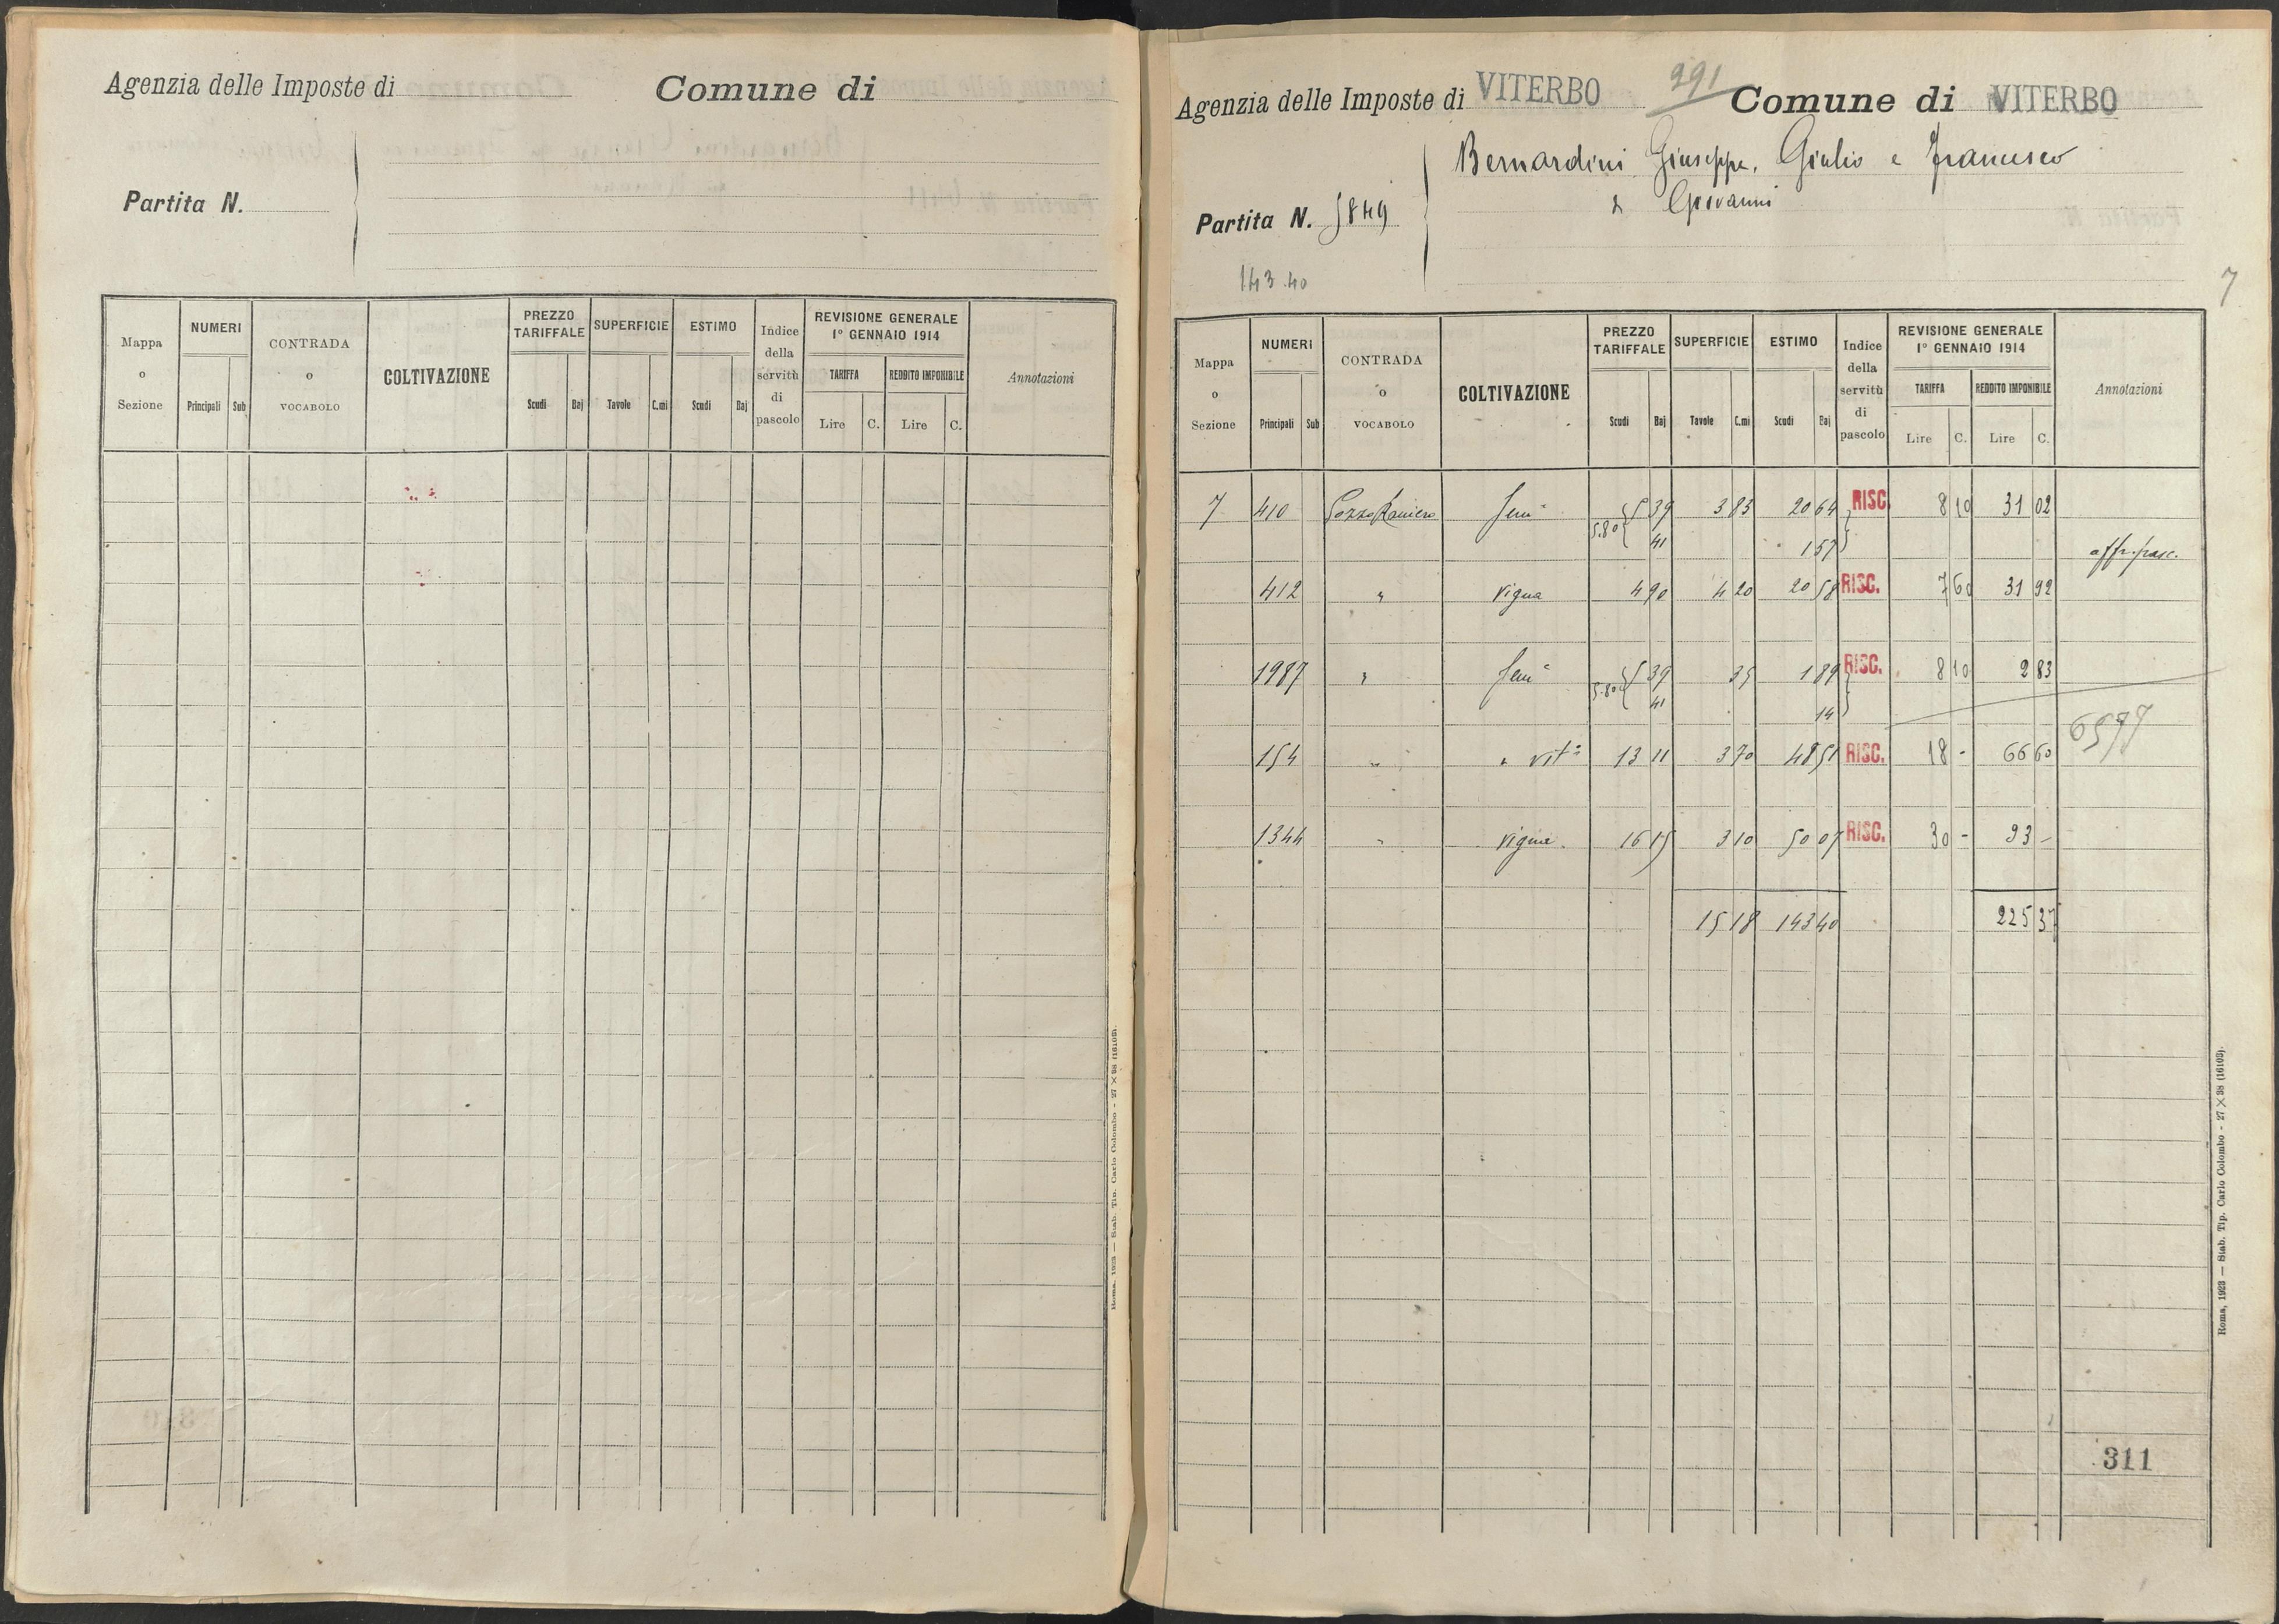 Agenzia delle Imposte di
Comune di
Partita N.
Mappa o Sezione
NUMERI
Principali
Sub
CONTRADA o VOCABOLO
COLTIVAZIONE
PREZZO TARIFFALE
Scudi
Baj
SUPERFICIE
Tavole
C.mi
ESTIMO
Scudi
Baj
Indice della servitù di pascolo
REVISIONE GENERALE
1° GENNAIO 1914
TARIFFA
Lire
C.
REDDITO IMPONIBILE
Lire
C.
Annotazioni
Roma, 1923 — Stab. Tip. Carlo Colombo - 27 × 38 (16103).
Agenzia delle Imposte di VITERBO
291
Comune di VITERBO
Bernardini Giuseppe, Giulio e Francesco
Giovanni
Partita N. 5849
143.40
7
Mappa o Sezione
NUMERI
Principali
Sub
CONTRADA o VOCABOLO
COLTIVAZIONE
PREZZO TARIFFALE
Scudi
Baj
SUPERFICIE
Tavole
C.mi
ESTIMO
Scudi
Baj
Indice della servitù di pascolo
REVISIONE GENERALE
1° GENNAIO 1914
TARIFFA
Lire
C.
REDDITO IMPONIBILE
Lire
C.
Annotazioni
7 410 Pozzo Raniero Sem° 5 39 3 83 20 64 RISC. 8 10 31 02
5.80 41 1 57
aff. pasc.
412 " vigna 4 90 4 20 20 58 RISC. 7 60 31 92
1987 " Sem° 5 39 35 1 89 RISC. 8 10 2 83
5.80 41 14
6577
154 " " vit° 13 11 3 70 48 51 RISC. 18 - 66 60
1344 " vigna 16 15 3 10 50 07 RISC. 30 - 93 -
15 18 143 40 225 37
311
Roma, 1923 — Stab. Tip. Carlo Colombo - 27 × 38 (16103).